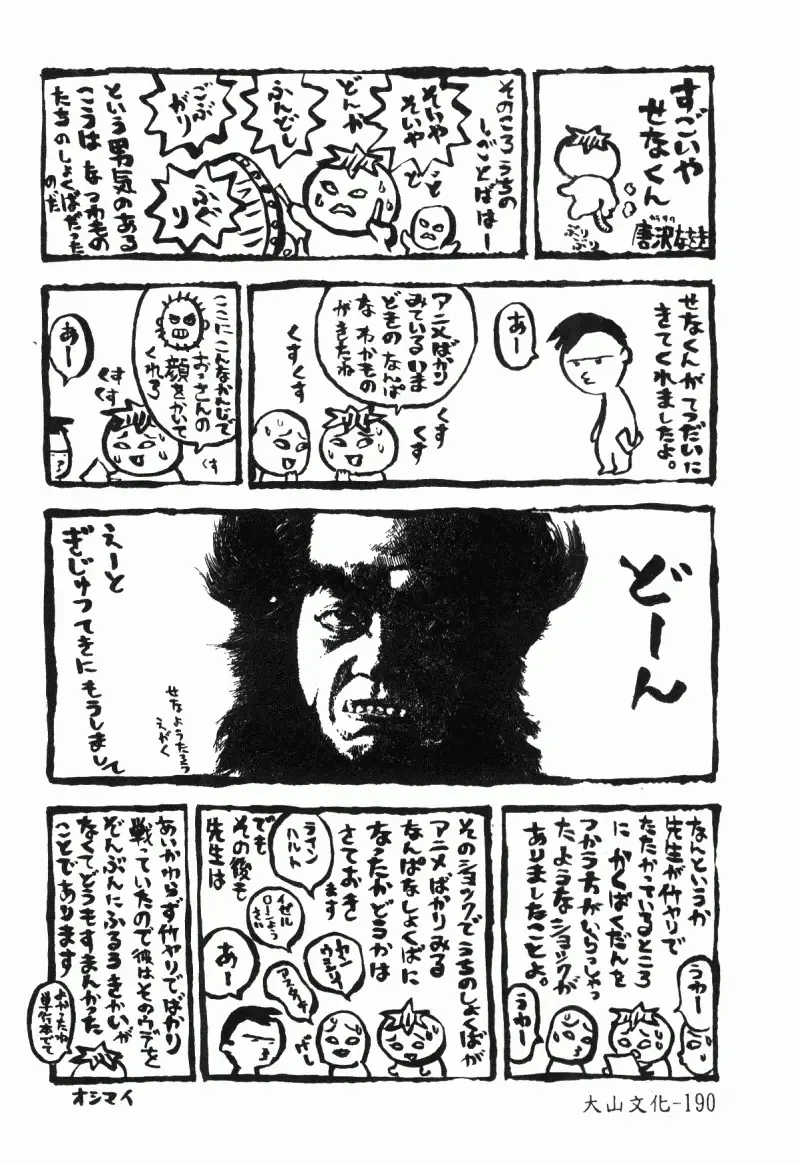 すごいや
せなくん
唐沢なをき
ぷりぷり
そのころうちの
しごとばはー
そいや
そいや
どんか
ふんどし
ごぶ
がり
ふぐ
り
という男気のある
こうはなつわもの
たちのしょくばだった
のだ
せなくんがてつだいに
きてくれましたよ。
あー
アニメばかり
みているいま
どきのなんぱ
なわかもの
がきたね
くす
くす
くすくす
ここにこんなかんじで
おっさんの
顔をかいて
くれろ
くす
くす
くす
あー
どーん
せなようたろう
えがく
えーと
ぎじゅつてきにもうしまして
なんというか
先生が竹ヤリで
たたかっているところ
にかくばくだんを
つかう方がいらっしゃっ
たようなショックが
ありましたことよ。
うわー
うわー
そのショックでうちのしょくばが
アニメばかりみる
なんぱなしょくばに
なったかどうかは
さておき
ます
でも
その後も
先生は
ライン
ハルト
イゼル
ローンようさい
ヤン
ウェンリー
アスターテ
あー
あいかわらず竹ヤリでばかり
戦っていたので彼はそのウデを
ぞんぶんにふるうきかいが
なくてどうもすまんかった
ことであります
よかったね
単行本でて
オシマイ
大山文化-190